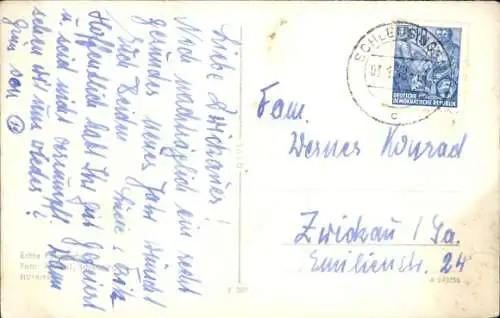 Liebe Zwickauer!
Noch nachträglich ein recht
gesundes neues Jahr wünscht
Euch Beiden
Hoffentlich habt Ihr gut gefeiert
u seid nicht versumpft. Wann
sehen wir uns wieder?
SCHLEUSINGEN
c
DEUTSCHE
DEMOKRATISCHE REPUBLIK
Fam.
Werner Konrad
Zwickau / Sa.
Emilienstr. 24
Echte
Foto: